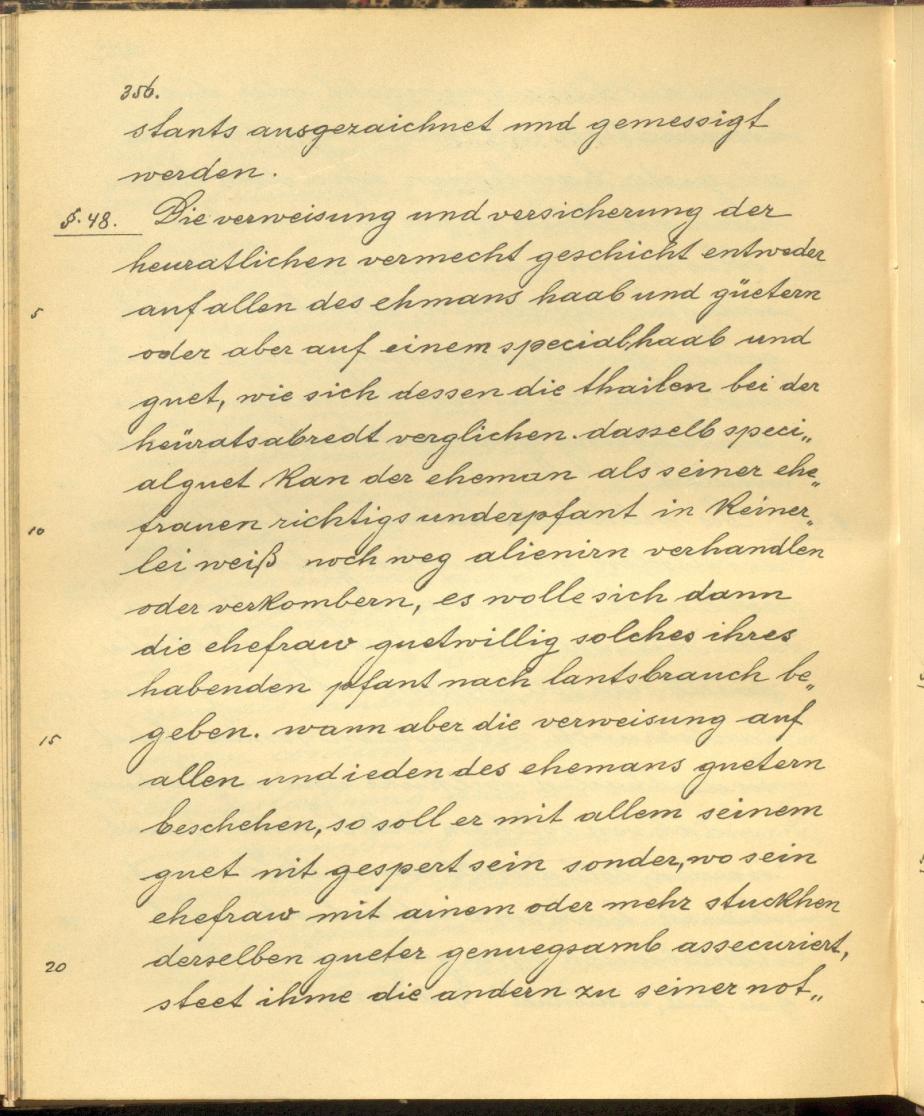 356.
stants ausgezaichnet und gemessigt
werden.
§. 48. Die verweisung und versicherung der
heuratlichen vermecht geschicht entweder
5 auf allen des ehmans haab und güetern
oder aber auf einem specialhaab und
guet, wie sich dessen die thailen bei der
heüratsabredt verglichen. dasselb speci„
alguet kan der eheman als seiner ehe„
10 frauen richtigs underpfant in keiner„
lei weiß noch weg alienirn verhandlen
oder verkombern, es wolle sich dann
die ehefraw guetwillig solches ihres
habenden pfant nach lantsbrauch be„
15 geben. wann aber die verweisung auf
allen und ieden des ehemans guetern
beschehen, so soll er mit allem seinem
guet nit gespert sein sonder, wo sein
ehefraw mit ainem oder mehr stuckhen
20 derselben gueter genuegsamb assecuriert,
steet ihme die andern zu seiner not„